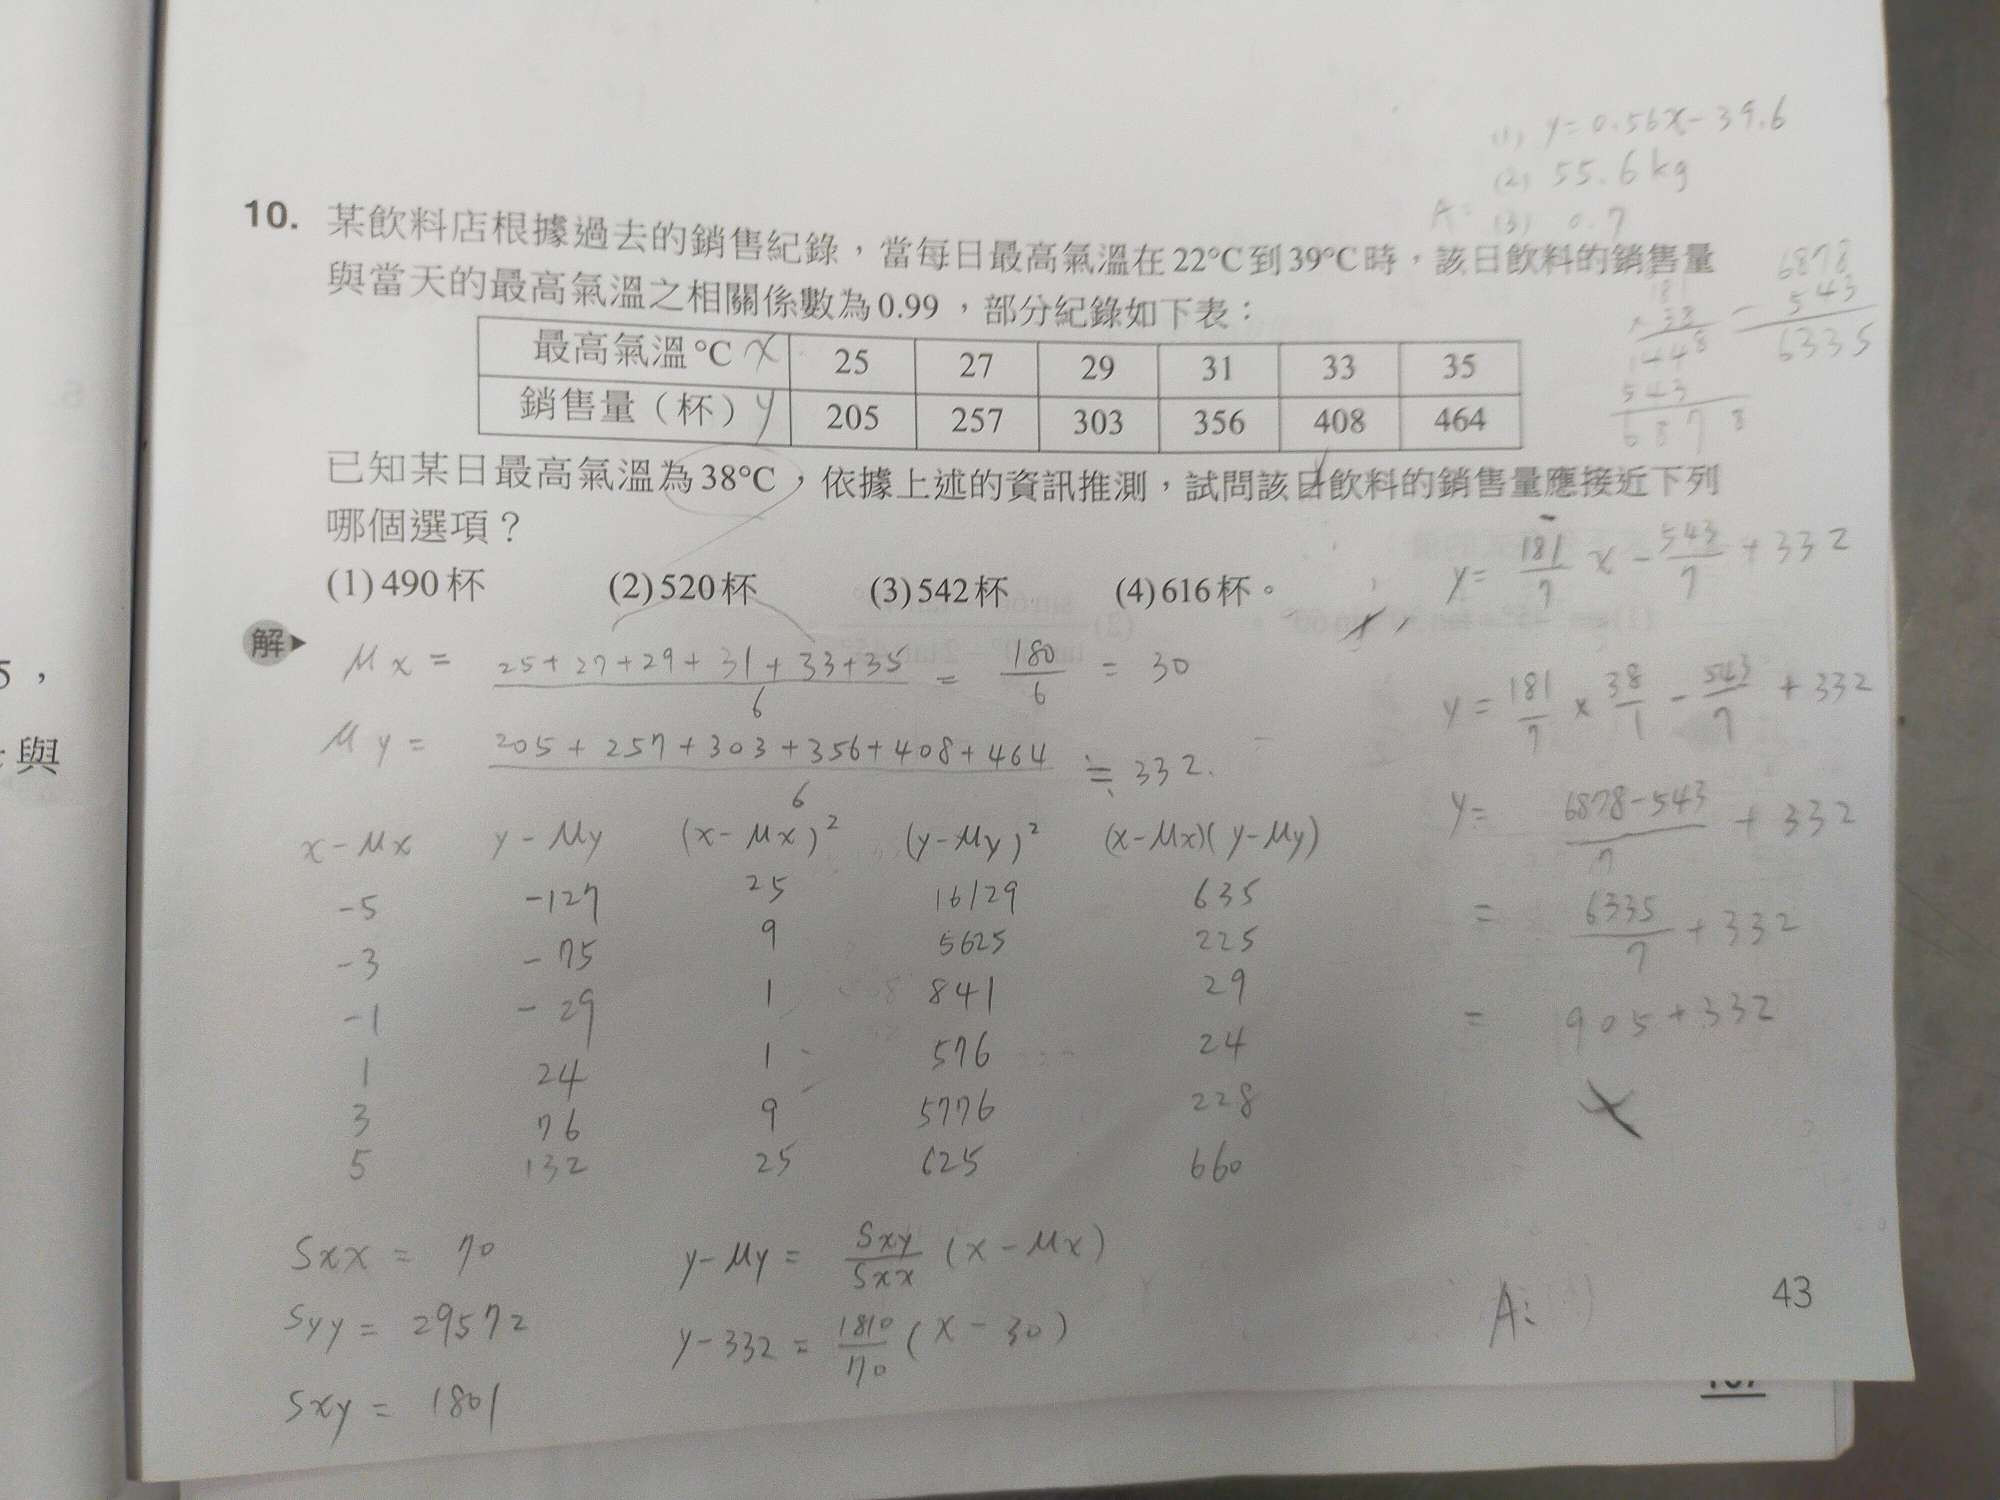 (1) y=0.56x-39.6
(2) 55.6kg
A: (3) 0.7
10. 某飲料店根據過去的銷售紀錄，當每日最高氣溫在22°C到39°C時，該日飲料的銷售量
與當天的最高氣溫之相關係數為0.99，部分紀錄如下表：
最高氣溫°C x 25 27 29 31 33 35
銷售量（杯）y 205 257 303 356 408 464
181
×38
1448
543
6878
6878
- 543
6335
已知某日最高氣溫為38°C，依據上述的資訊推測，試問該日飲料的銷售量應接近下列
哪個選項？
(1)490杯 (2)520杯 (3)542杯 (4)616杯。
解
μx = 25+27+29+31+33+35/6 = 180/6 = 30
μy = 205+257+303+356+408+464/6 ≒ 332.
x-μx y-μy (x-μx)² (y-μy)² (x-μx)(y-μy)
-5 -127 25 16129 635
-3 -75 9 5625 225
-1 -29 1 841 29
1 24 1 576 24
3 76 9 5776 228
5 132 25 625 660
Sxx = 70
Syy = 29572
Sxy = 1801
y-μy = Sxy/Sxx (x-μx)
y-332 = 1810/70 (x-30)
y= 181/7 x - 543/7 + 332
y= 181/7 × 38/1 - 543/7 + 332
y= 6878-543/7 + 332
= 6335/7 + 332
= 905+332
A:
43
5，
與